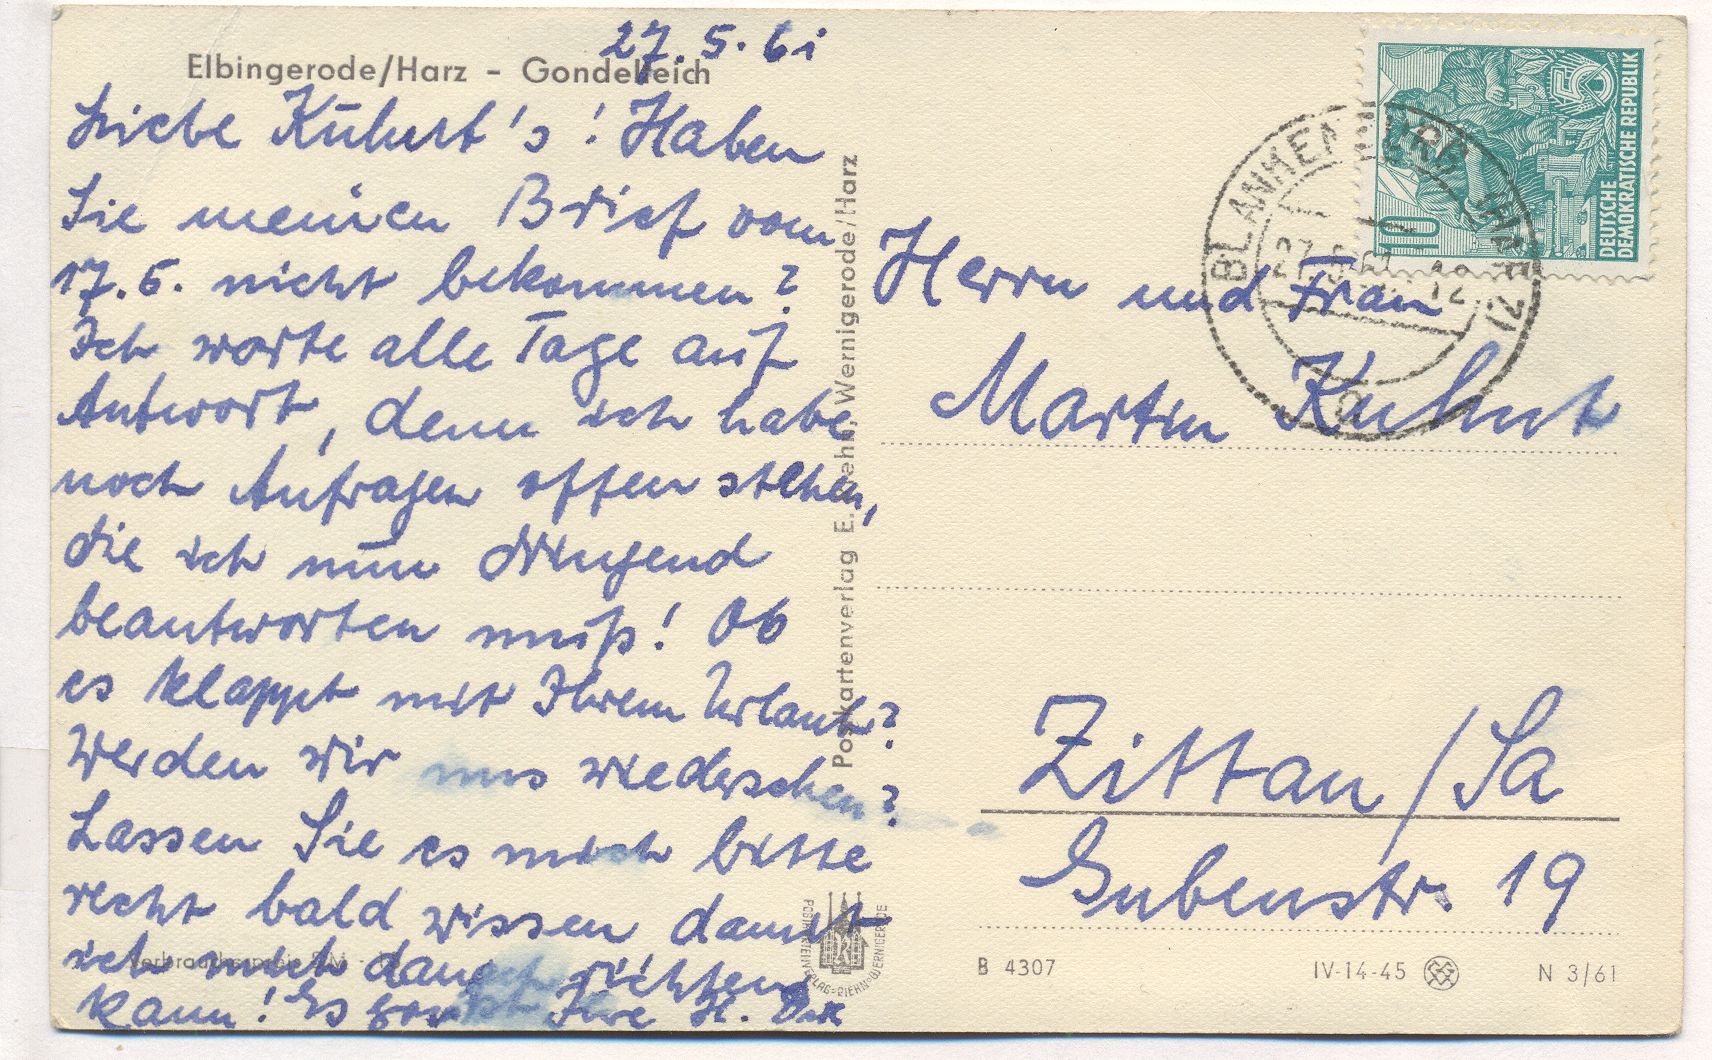 27.5.61
Elbingerode/Harz - Gondelteich
Liebe Kuhnt's! Haben
Sie meinen Brief vom
17.5. nicht bekommen?
Ich warte alle Tage auf
Antwort, denn ich habe
noch Anfragen offen stehen,
die ich nun dringend
beantworten muß! Ob
es klappt mit Ihrem Urlaub?
Werden wir uns wiedersehen?
Lassen Sie es mich bitte
recht bald wissen damit
ich mich danach richten
kann! Es Ihre H.
Verbrauchspreis DM
Postkartenverlag E. Riehn, Wernigerode/Harz
POSTKARTENVERLAG-RIEHN-WERNIGERODE
DEUTSCHE
DEMOKRATISCHE REPUBLIK
10
5
BLANKENBURG (HARZ)
27.5.61-12
a
Herrn und Frau
Martin Kuhnt
Zittau/Sa
Gubenstr. 19
B 4307
IV-14-45
N 3/61